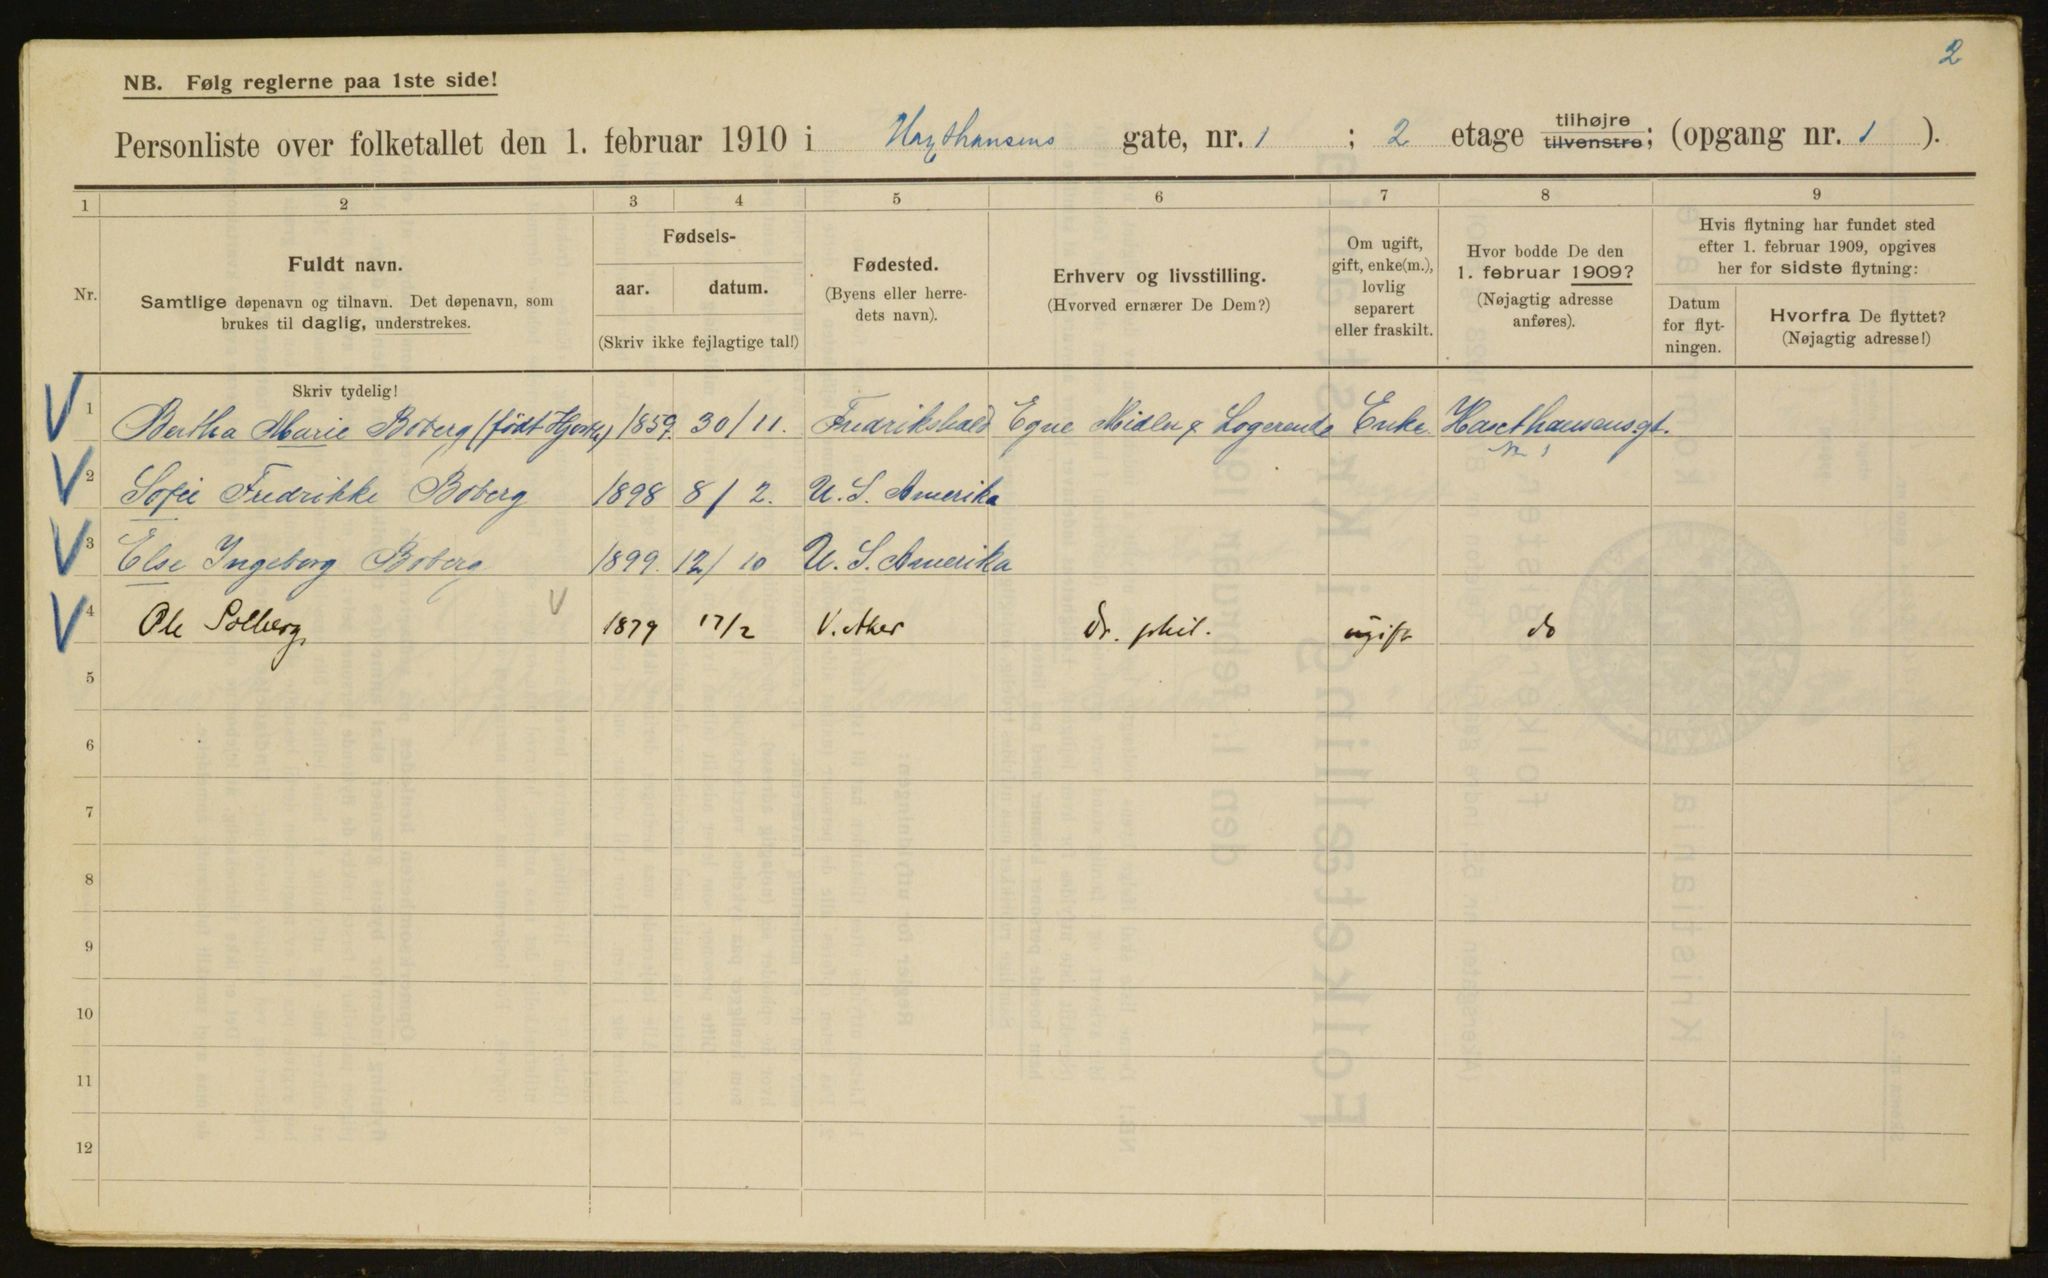 2
NB. Følg reglerne paa 1ste side!
Personliste over folketallet den 1. februar 1910 i Haxthausens gate, nr. 1 ; 2 etage tilhøjre tilvenstre; (opgang nr. 1 ).
1 2 3 4 5 6 7 8 9
Nr.
Fuldt navn.
Samtlige døpenavn og tilnavn. Det døpenavn, som
brukes til daglig, understrekes.
Fødsels-
aar. datum.
(Skriv ikke fejlagtige tal!)
Fødested.
(Byens eller herre-
dets navn).
Erhverv og livsstilling.
(Hvorved ernærer De Dem?)
Om ugift,
gift, enke(m.),
lovlig
separert
eller fraskilt.
Hvor bodde De den
1. februar 1909?
(Nøjagtig adresse
anføres).
Hvis flytning har fundet sted
efter 1. februar 1909, opgives
her for sidste flytning:
Datum
for flyt-
ningen.
Hvorfra De flyttet?
(Nøjagtig adresse!)
Skriv tydelig!
1 Bertha Marie Boberg (født) 1859. 30/11. Fredrikshald Egne Midler & Logerende Enke Haxthausensgt.
Nr 1
2 Sofie Fredrikke Boberg 1898 8/2. U. S. Amerika
3 Else Ingeborg Boberg 1899. 12/10 U. S. Amerika
4 Ole Solberg 1879 17/2 V. Aker Dr. phil. ugift do
5
6
7
8
9
10
11
12